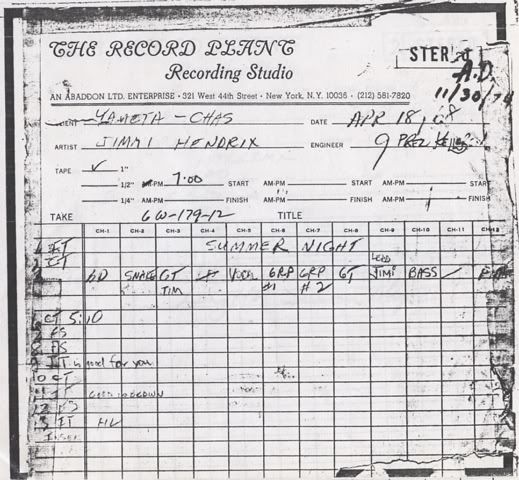 THE RECORD PLANT
Recording Studio
STEREO
A.D.
11/30/74
AN ABADDON LTD. ENTERPRISE • 321 West 44th Street • New York, N.Y. 10036 • (212) 581-7820
CLIENT YAMETA - CHAS DATE APR 18, 68
ARTIST JIMMI HENDRIX ENGINEER
TAPE ✓ 1"
1/2" AM-PM 7:00 START AM-PM START AM-PM START
1/4" AM-PM FINISH AM-PM FINISH AM-PM FINISH
TAKE GW-179-12 TITLE
CH-1 CH-2 CH-3 CH-4 CH-5 CH-6 CH-7 CH-8 CH-9 CH-10 CH-11 CH-12
SUMMER NIGHT
LEAD
BD SNARE GT VOCAL GRP GRP GT JIMI BASS
TIM #1 #2
CT 5:10
FS
FS
IT is not for you
CT
IT GOOD BREAKDOWN
IT HL